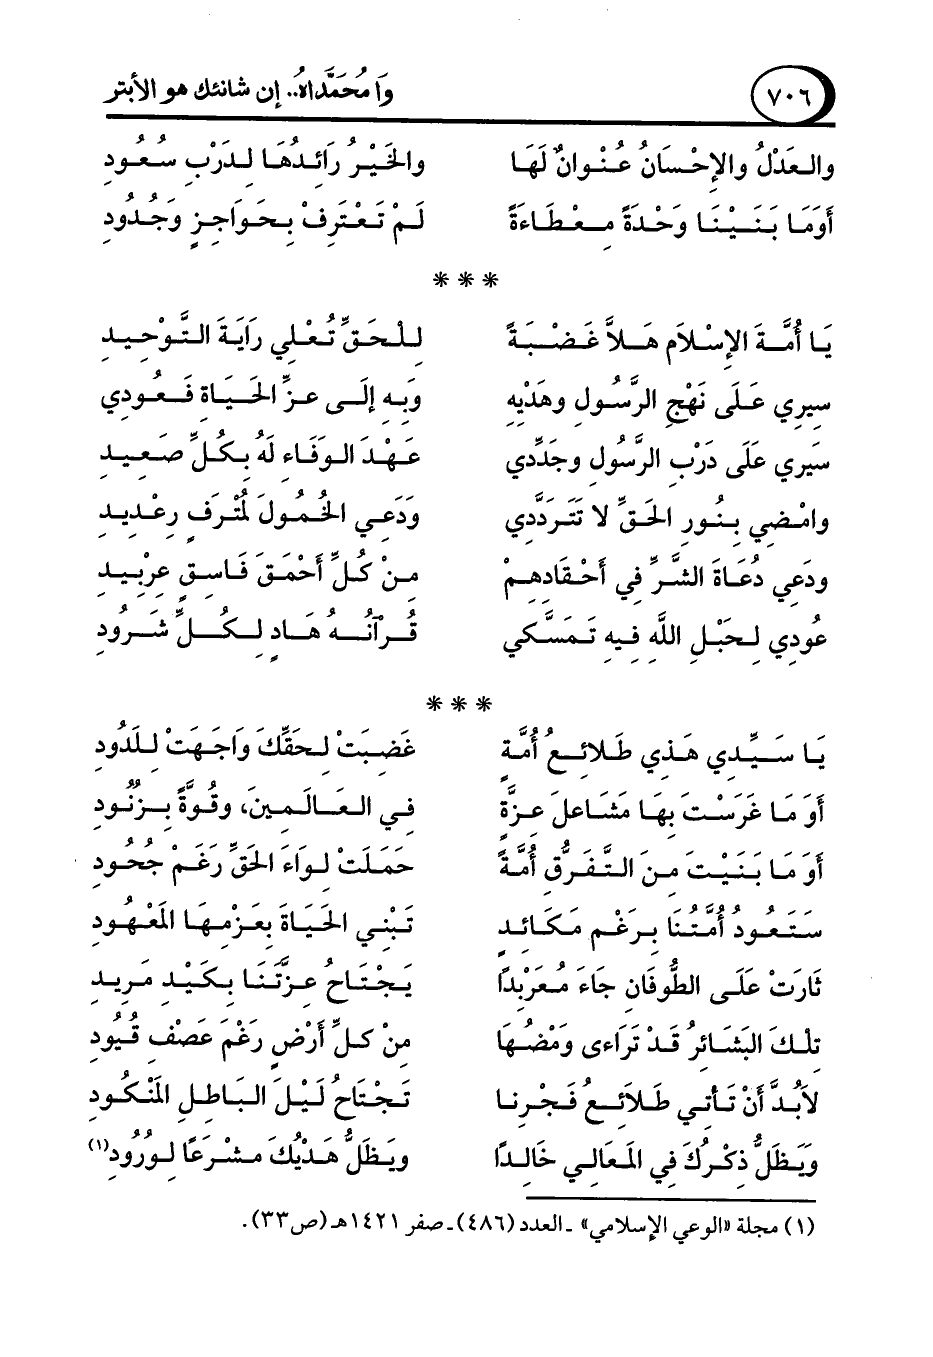 ٧٠٦
وَا مُحَمَّدَاهُ.. إن شانئك هو الأبتر
والعَدْلُ والإحْسَانُ عُنْوانٌ لَهَا والخَيْرُ رَائِدُهَا لدَرْبِ سُعُود
أَوَمَا بَنَيْنَا وَحْدَةً مِعْطَاءَةً لَمْ تَعْتَرِفْ بحَوَاجِزٍ وَحُدُود
***
يَا أُمَّةَ الإسْلامِ هَلاَّ غَضْبَةً لِلْحَقِّ تُعْلي رَايَةَ التَّوْحِيدِ
سيري عَلَى نَهْجِ الرَّسُولِ وهَدْيِهِ وَبِه إِلَى عِزِّ الحَيَاةِ فَعُودي
سَيري عَلَى دَرْبِ الرَّسُولِ وجَدِّدي عَهْدَ الوَفَاءِ لَهُ بِكُلِّ صَعِيدِ
وامْضِي بنُورِ الحَقِّ لا تَتَرَدَّدي وَدَعي الخُمُولَ لمُتْرَفٍ رِعْدِيد
ودَعي دُعَاةَ الشَّرِّ في أَحْقَادِهِمْ مِنْ كُلِّ أَحْمَقَ فَاسِقٍ عِرْبِيدِ
عُودي لِحَبْلِ اللَّهِ فيه تَمَسَّكي قُرْآنُهُ هَادٍ لِكُلِّ شَرُودِ
***
يَا سَيِّدي هَذي طَلائِعُ أُمَّةٍ غَضِبَتْ لِحَقِّكَ وَاجَهَتْ لِلَدُودِ
أَوَ مَا غَرَسْتَ بِهَا مَشَاعِلَ عِزَّةٍ في العَالَمِينَ، وقُوَّةً بِزُنُودِ
أَوَ مَا بَنَيْتَ مِنَ التَّفَرُّقِ أُمَّةً حَمَلَتْ لِواءَ الحَقِّ رَغْمَ جُحُودِ
سَتَعُودُ أُمَّتُنَا بِرَغْمِ مَكَائِدٍ تَبْني الحَيَاةَ بعَزْمِهَا المَعْهُودِ
ثَارَتْ عَلَى الطُّوفَانِ جَاءَ مُعَرْبِدًا يَجْتَاحُ عِزَّتَنَا بكَيْدِ مَرِيدِ
تِلْكَ البَشَائِرُ قَدْ تَرَاءى وَمْضُهَا مِنْ كلِّ أَرْضٍ رَغْمَ عَصْفِ قُيُودِ
لاَبُدَّ أَنْ تَأتي طَلائعُ فَجْرِنا تَجْتَاحُ لَيْلَ البَاطِلِ المَنْكُودِ
وَيَظَلُّ ذِكْرُكَ في المَعَالي خَالدًا ويَظَلُّ هَدْيُكَ مَشْرَعًا لورُودِ(١)
(١) مجلة «الوعي الإسلامي» ـ العدد (٤٨٦) ـ صفر ١٤٢١هـ (ص٣٣).